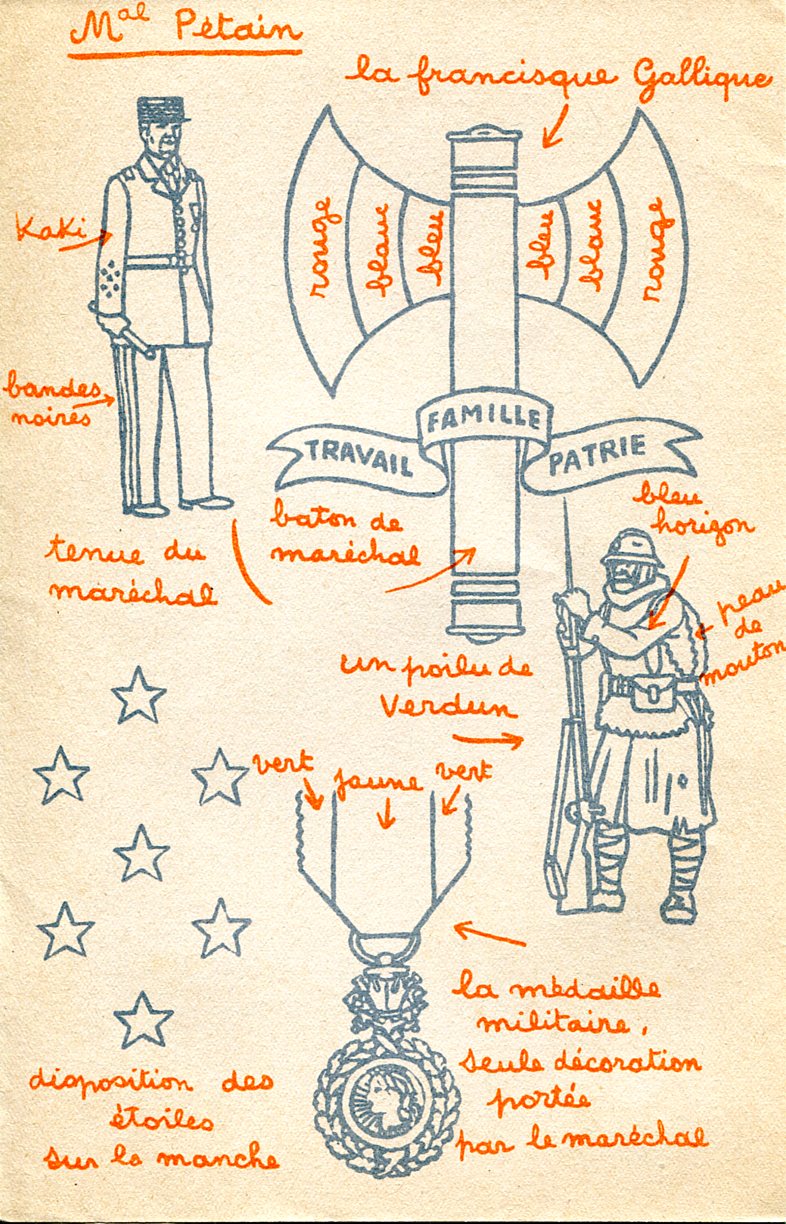 Mal Pétain
la francisque Gallique
Kaki
rouge
blanc
bleu
bleu
blanc
rouge
bandes
noires
TRAVAIL
FAMILLE
PATRIE
tenue du
maréchal
baton de
maréchal
bleu
horizon
peau
de
mouton
un poilu de
Verdun
vert
jaune
vert
la médaille
militaire,
seule décoration
portée
par le maréchal
disposition des
étoiles
sur la manche